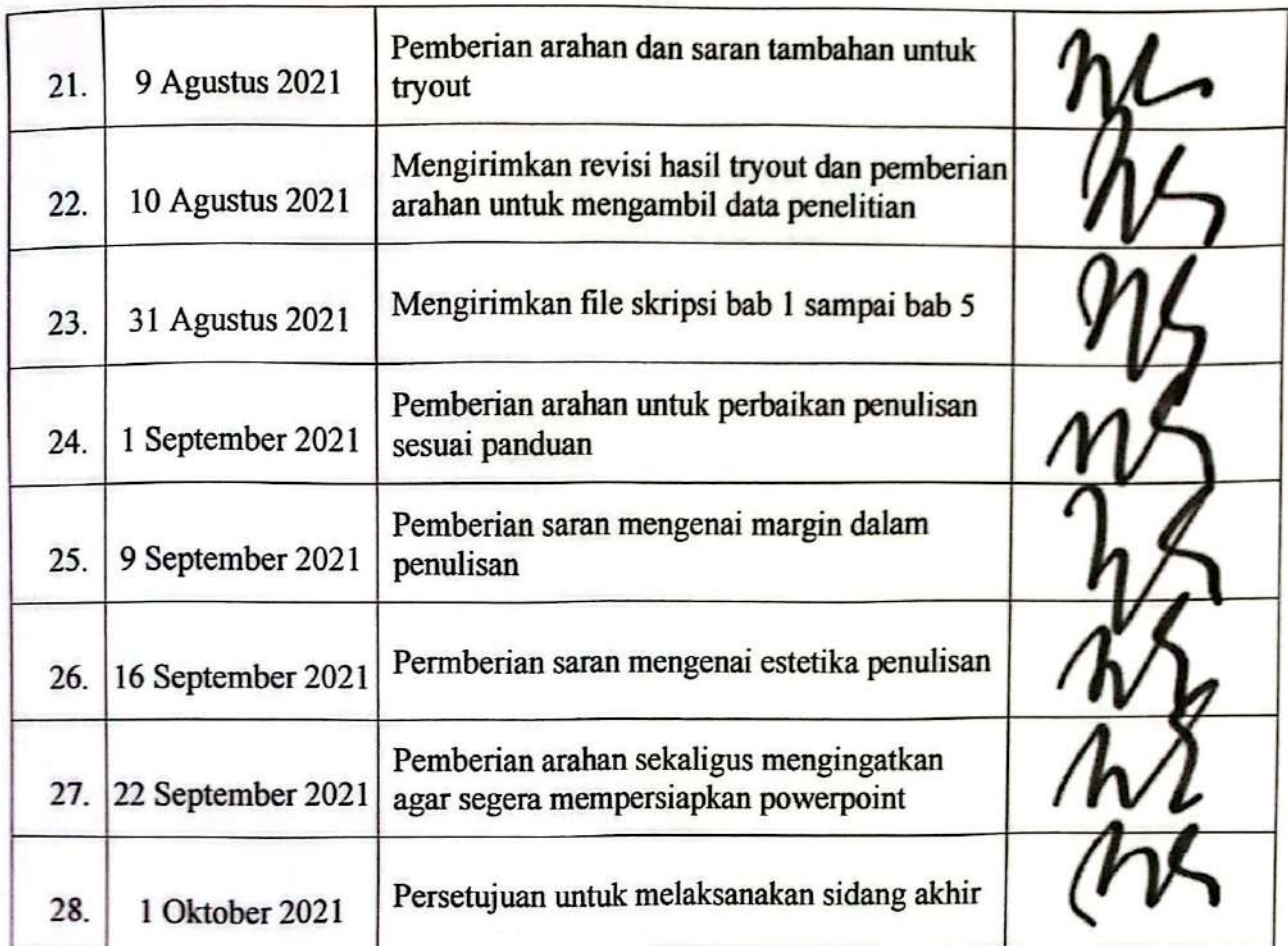 21. 9 Agustus 2021 Pemberian arahan dan saran tambahan untuk
tryout
22. 10 Agustus 2021 Mengirimkan revisi hasil tryout dan pemberian
arahan untuk mengambil data penelitian
23. 31 Agustus 2021 Mengirimkan file skripsi bab 1 sampai bab 5
24. 1 September 2021 Pemberian arahan untuk perbaikan penulisan
sesuai panduan
25. 9 September 2021 Pemberian saran mengenai margin dalam
penulisan
26. 16 September 2021 Permberian saran mengenai estetika penulisan
27. 22 September 2021 Pemberian arahan sekaligus mengingatkan
agar segera mempersiapkan powerpoint
28. 1 Oktober 2021 Persetujuan untuk melaksanakan sidang akhir